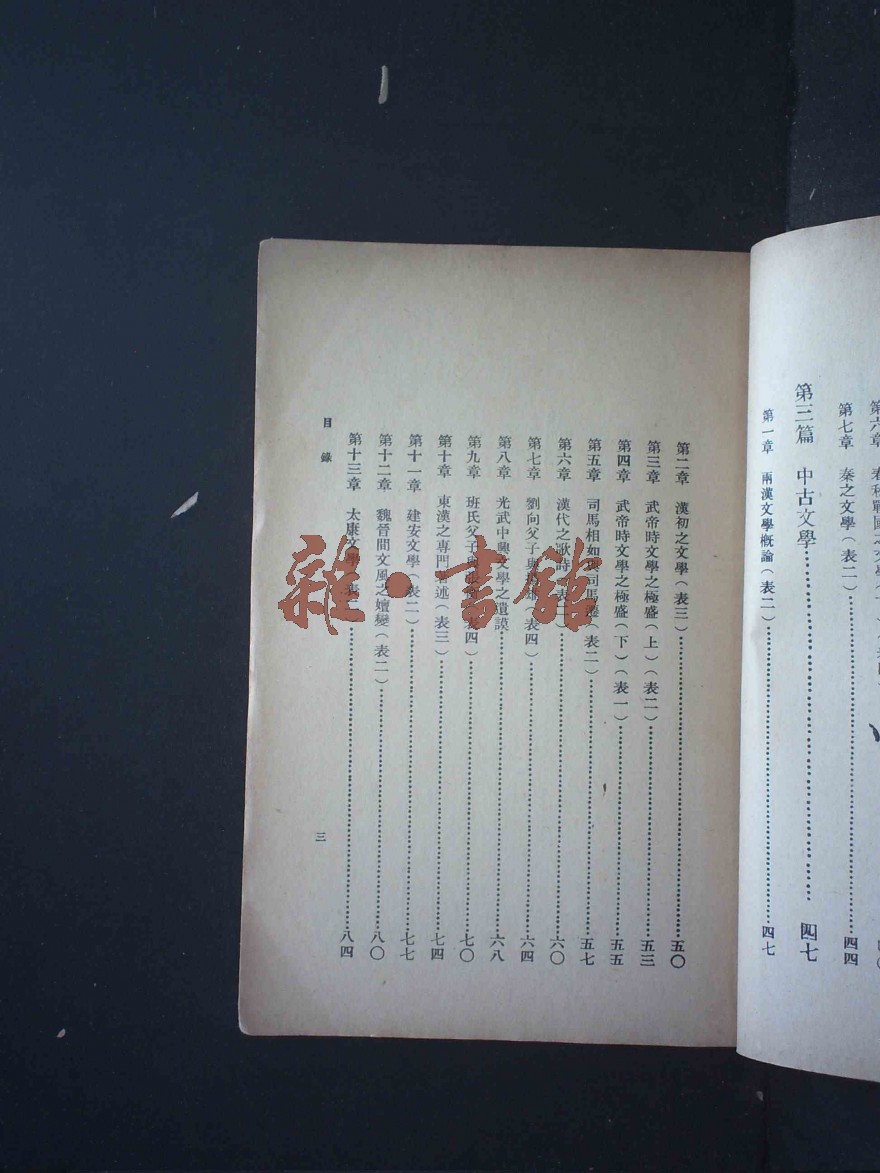 第六章 春秋戰國之文學
第七章 秦之文學(表二)……四四
第三篇 中古文學……四七
第一章 兩漢文學概論(表二)……四七
第二章 漢初之文學(表三)……五〇
第三章 武帝時文學之極盛(上)(表二)……五三
第四章 武帝時文學之極盛(下)(表一)……五五
第五章 司馬相如與司馬遷(表二)……五七
第六章 漢代之歌詩(表二)……六〇
第七章 劉向父子與(表四)……六四
第八章 光武中興文學之遺謨……六八
第九章 班氏父子與張(表四)……七〇
第十章 東漢之專門著述(表三)……七四
第十一章 建安文學(表二)……七七
第十二章 魏晉間文風之嬗變(表二)……八〇
第十三章 太康文學(表……八四
目錄
三
雜·書館